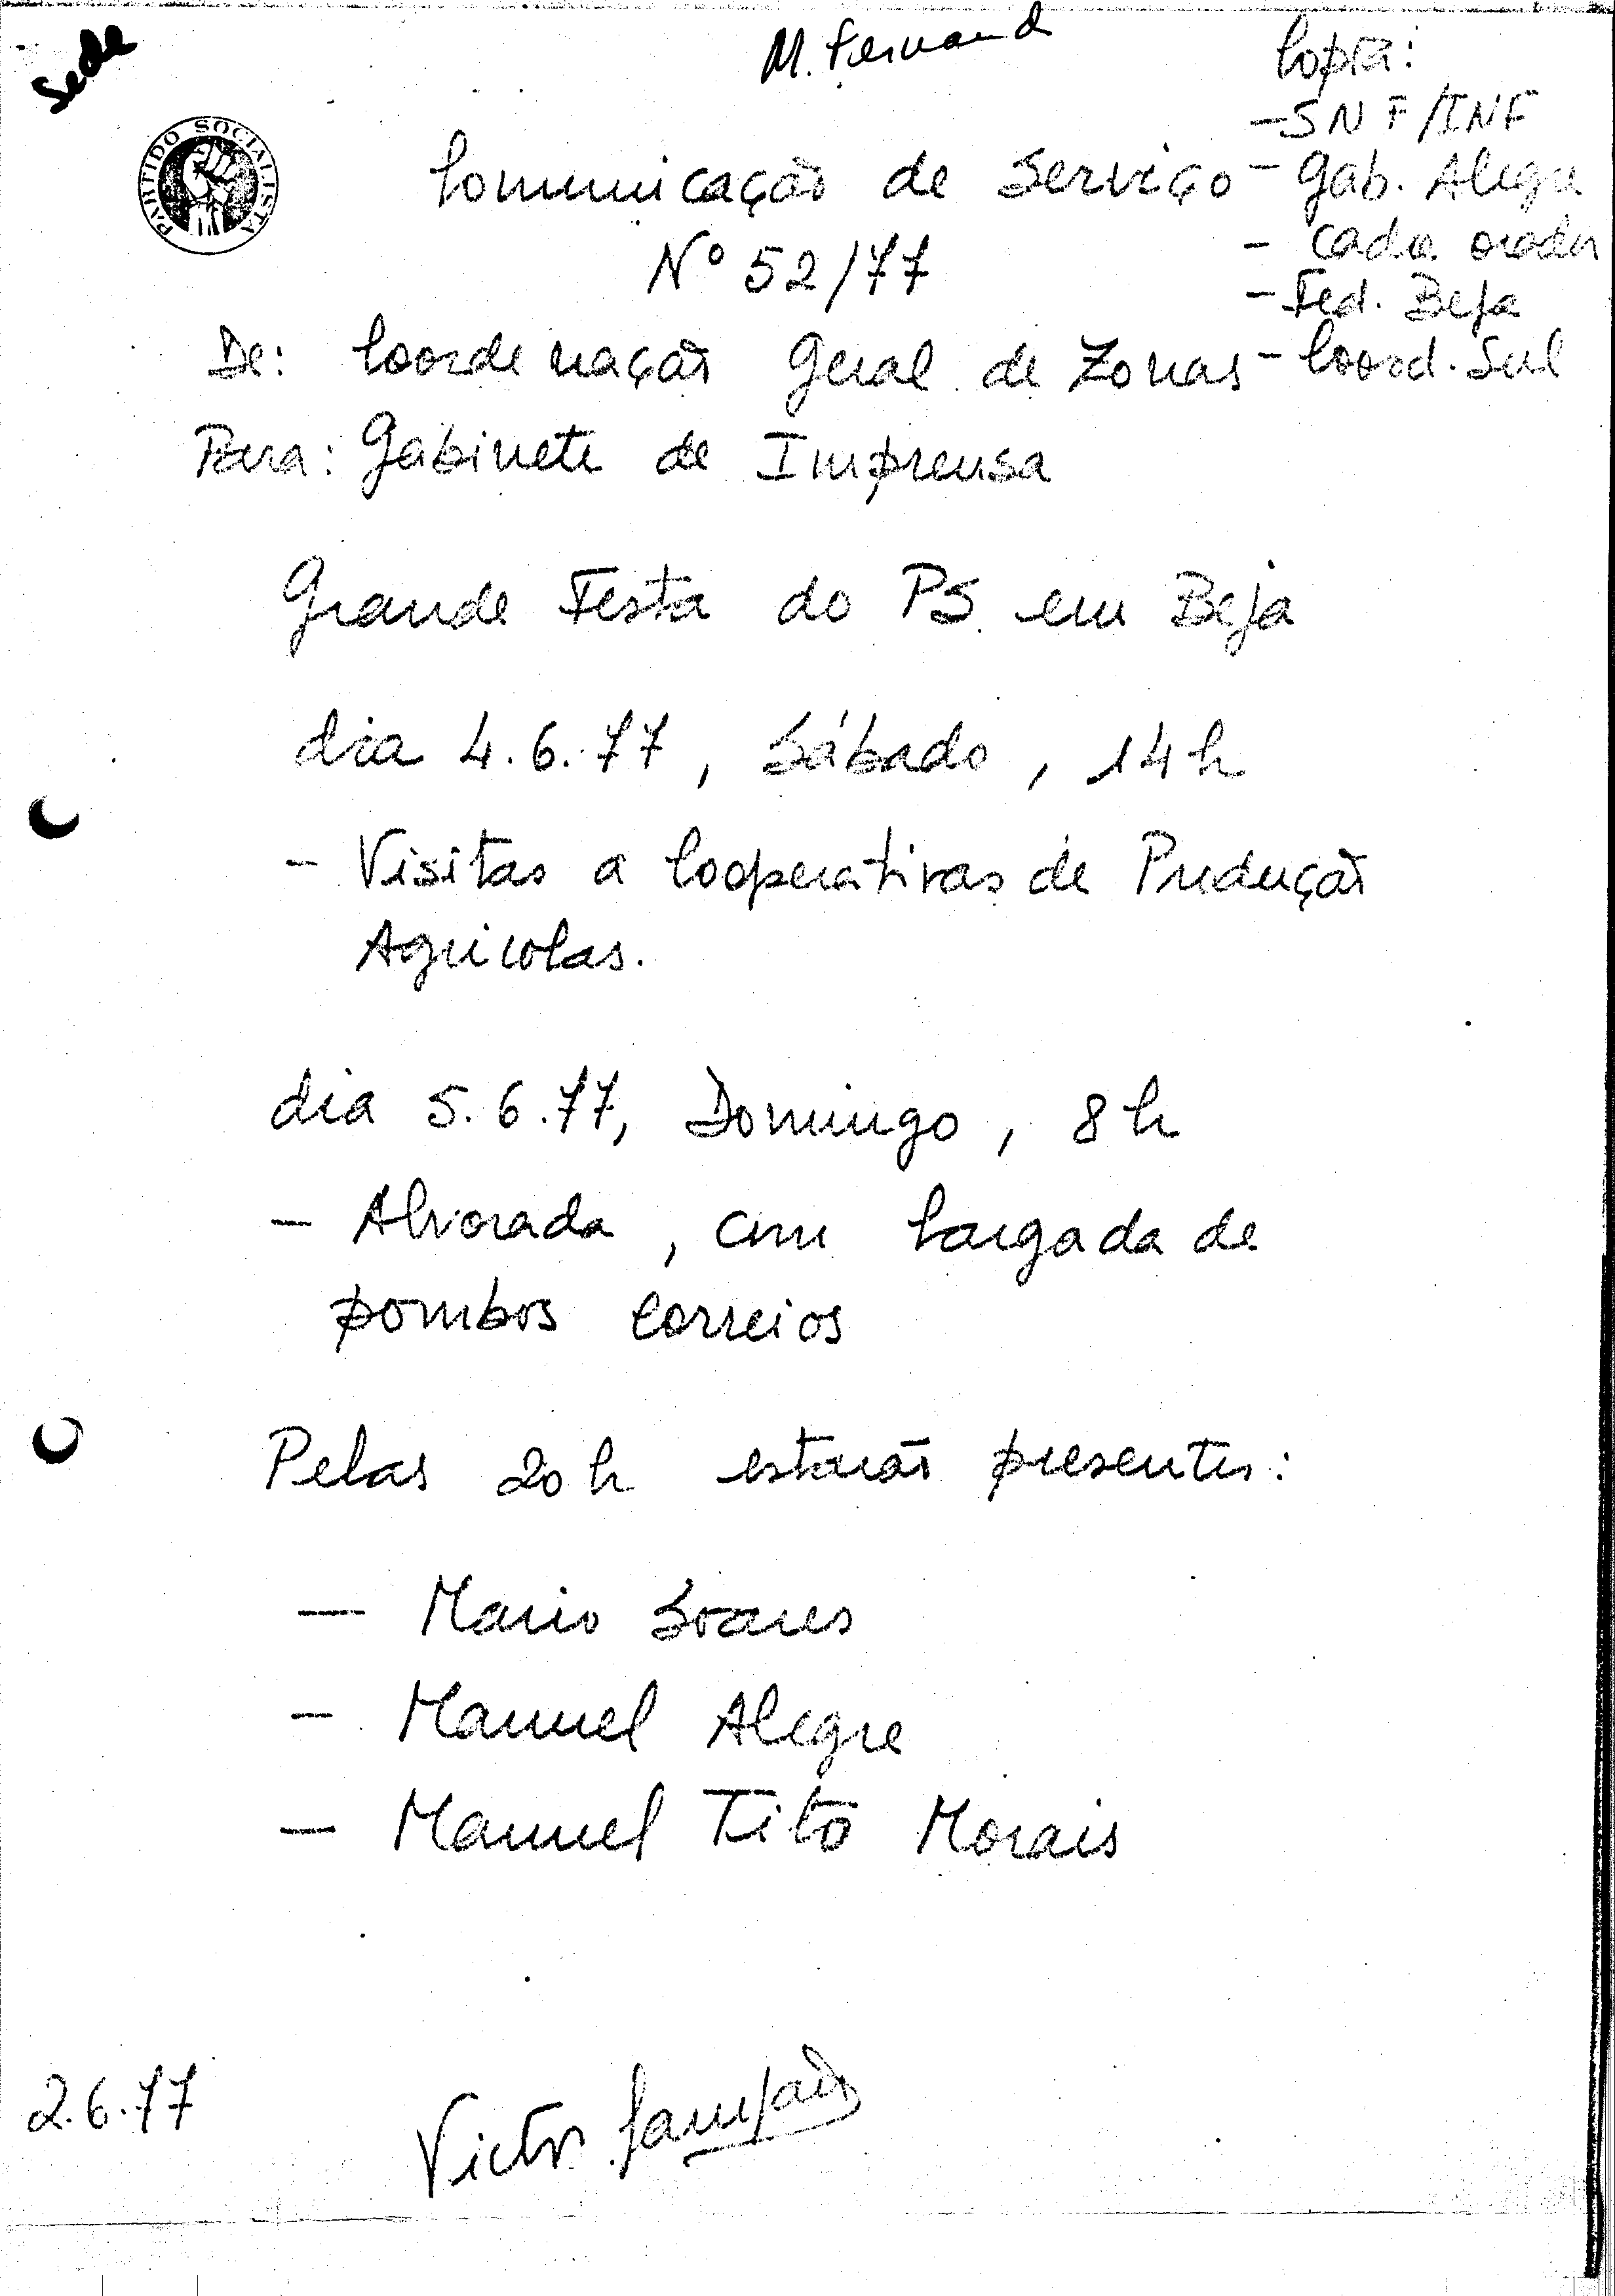 Sede
M. Fernand
Copia:
- SNF/INF
- Gab. Alegre
- cada orador
- Fed. Beja
- Coord. Sul
PARTIDO SOCIALISTA
Comunicação de Serviço
Nº 52/77
De: Coordenação Geral de Zonas
Para: Gabinete de Imprensa
Grande Festa do PS em Beja
dia 4.6.77, Sábado, 14h
- Visitas a Cooperativas de Produção
Agricolas.
dia 5.6.77, Domingo, 8h
- Alvorada, com largada de
pombos correios
Pelas 20h estarão presentes:
- Mario Soares
- Manuel Alegre
- Manuel Tito Morais
2.6.77
Victor Sampaio